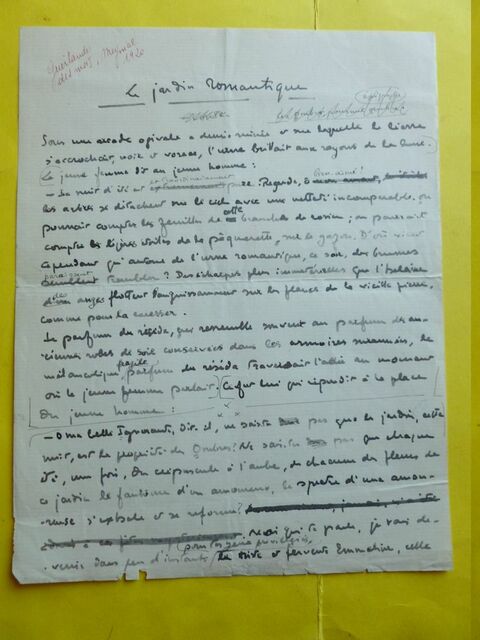 Guirlande
des mois, Meynial
1920
Le jardin romantique
Sous une arcade ogivale à demi ruinée et sur laquelle le lierre
s'accrochait, noir et vorace, l'urne brillait aux rayons de la lune.
La jeune femme dit au jeune homme :
extraordinairement bien-aimé !
– La nuit d'été est extrêmement pure. Regarde, ô mon amant,
les arbres se détachent sur le ciel avec une netteté incomparable. On
pourrait compter les feuilles de cette branche de rosier ; on pourrait
compter les légères étoiles de la pâquerette, sur le gazon. D'où vient
cependant qu'autour de l'urne romantique, ce soir, des brumes
paraissent
semblent trembler ? Des écharpes plus immatérielles que l'haleine
d'un ange flottent languissamment sur les flancs de la vieille pierre,
comme pour la caresser.
Le parfum du réséda, qui ressemble souvent au parfum des an-
ciennes robes de soie conservées dans les armoires surannées, le
mélancolique, fragile parfum du réséda traversait l'allée au moment
où la jeune femme parlait. Ce fut lui qui répondit à la place
du jeune homme :
– O ma belle Ignorante, dit-il, ne sais-tu pas que le jardin, cette
nuit, est la propriété des Ombres ? Ne sais-tu pas que chaque
été, une fois, du crépuscule à l'aube, de chacune des fleurs de
ce jardin le fantôme d'un amoureux, le spectre d'une amou-
reuse s'exhale et se reforme ?
Moi qui te parle, je vais de-
pour tes yeux privilégiés,
venir dans peu d'instants la triste et fervente Emmeline, celle